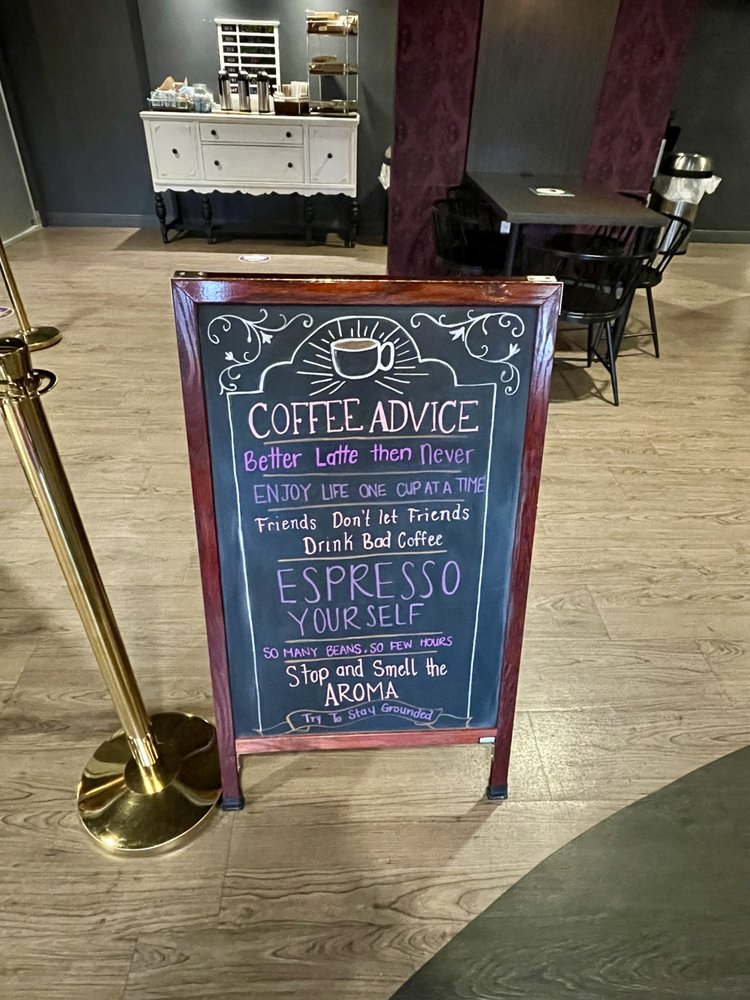 COFFEE ADVICE
Better Latte then Never
ENJOY LIFE ONE CUP AT A TIME
Friends Don't let Friends
Drink Bad Coffee
ESPRESSO
YOURSELF
SO MANY BEANS. SO FEW HOURS
Stop and Smell the
AROMA
Try To Stay Grounded